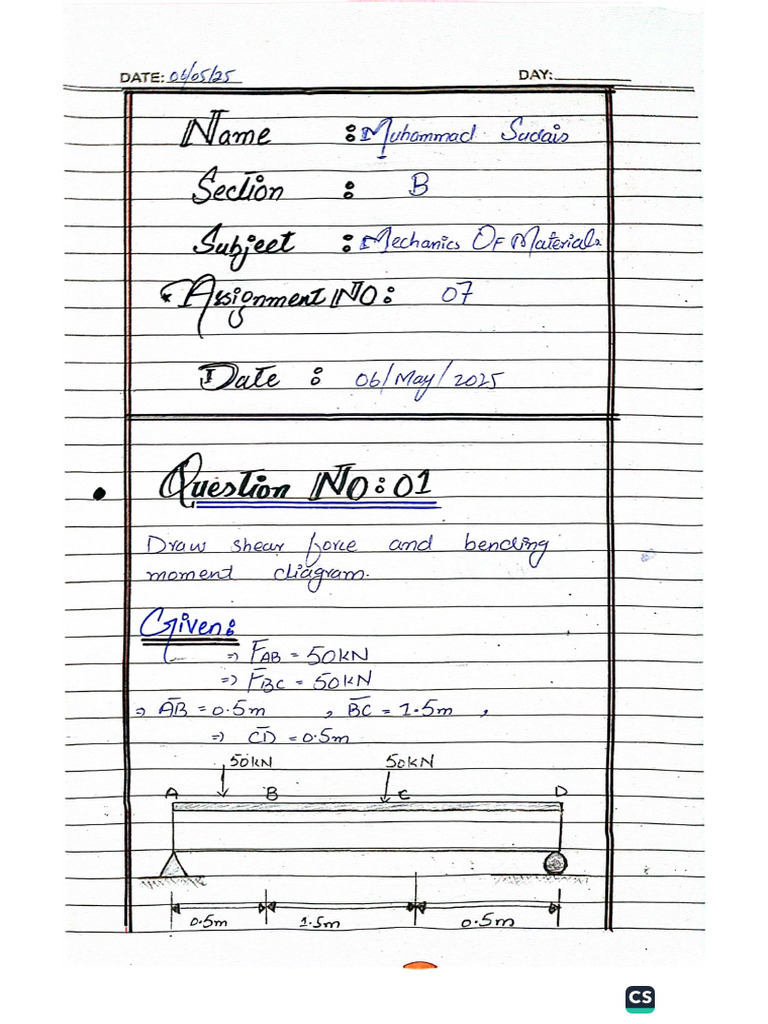 DATE: 06/05/25 DAY:
Name : Muhammad Sudais
Section : B
Subject : Mechanics Of Materials
* Assignment NO: 07
Date : 06/May/2025
• Question NO:01
Draw shear force and bending
moment diagram.
Given:
⇒ F̄AB = 50KN
⇒ F̄BC = 50KN
⇒ A̅B̅ = 0.5m , B̅C̅ = 1.5m ,
⇒ C̅D̅ = 0.5m
50KN 50KN
A B C D
0.5m 1.5m 0.5m
CS